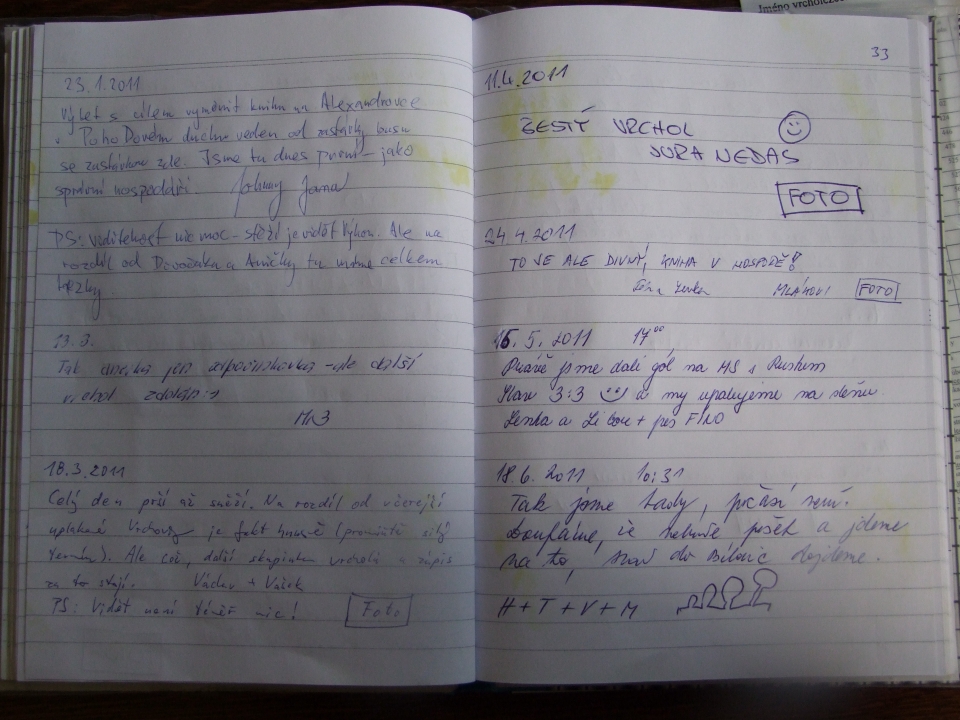 23.1.2011
Výlet s cílem vyměnit knihu na Alexandrovce
v PohoDovém duchu veden od zastávky busu
se zastávkou zde. Jsme tu dnes první – jako
správní hospodáři. Johnny Jana
PS: viditelnost nic moc – stěží je vidět Výhon. Ale na
rozdíl od Devočáku a Aničky tu máme celkem
hezky.
13.3.
Tak dneska jen odpočinkovka – ale další
vrchol zdolán :-)
MK3
18.3.2011
Celý den prší až sněží. Na rozdíl od včerejší
uplakané Vrchoviny je fakt hnusně (promiňte silný
termín). Ale což, další skupinka vrcholů a zápis
za to stojí. Václav + Vašek
PS: Vidět není téměř nic! Foto
Jméno vrcholu
33
11.4.2011
ŠESTÝ VRCHOL
JURA NEDAS
FOTO
24.4.2011
TO JE ALE DIVNÝ, KNIHA V HOSPODĚ!
Lenka MLÁKOVI FOTO
15. 5. 2011 17⁰⁰
Právě jsme dali gól na MS s Ruskem
Stav 3:3 a my upalujeme na
Lenka a Libor + pes FINO
18.6.2011 10:31
Tak jsme tady, počasí nemá.
Doufáme, že nebude pršet a jdeme
na to, snad do Bílovic dojdeme.
H + T + V + M